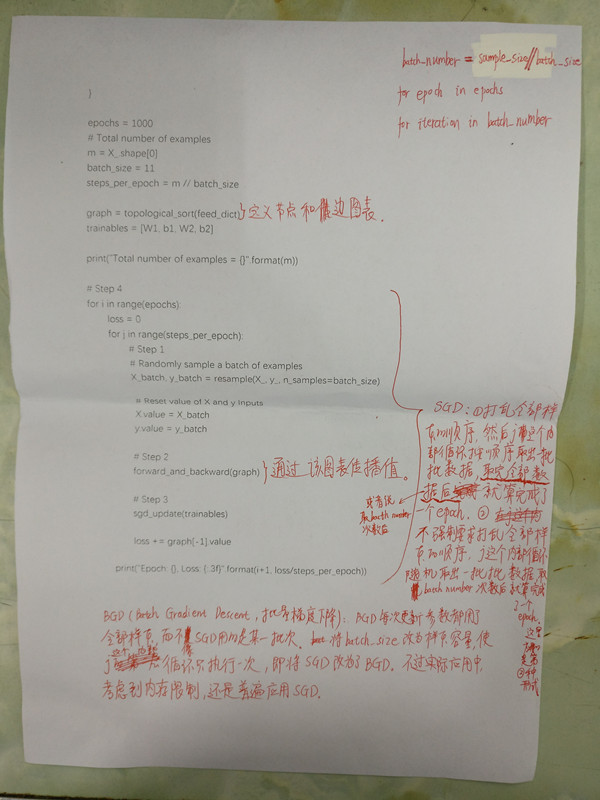 batch_number = sample_size//batch_size
for epoch in epochs
for iteration in batch_number
}
epochs = 1000
# Total number of examples
m = X_.shape[0]
batch_size = 11
steps_per_epoch = m // batch_size
graph = topological_sort(feed_dict) }定义节点和边图表.
trainables = [W1, b1, W2, b2]
print("Total number of examples = {}".format(m))
# Step 4
for i in range(epochs):
loss = 0
for j in range(steps_per_epoch):
# Step 1
# Randomly sample a batch of examples
X_batch, y_batch = resample(X_, y_, n_samples=batch_size)
# Reset value of X and y Inputs
X.value = X_batch
y.value = y_batch
# Step 2
forward_and_backward(graph) }通过该图表传播值.
# Step 3
sgd_update(trainables)
loss += graph[-1].value
print("Epoch: {}, Loss: {:.3f}".format(i+1, loss/steps_per_epoch))
SGD: ①打乱全部样
本的顺序, 然后j带这个内
部循环按顺序取出一批
批数据, 取完全部数
据后就算完成了
一个epoch. ②
不强制要求打乱全部样
本的顺序, j这个内部循环
随机取出一批批数据, 取
batch number 次数后就算完成
了一个
epoch.
这里
的是第
②种
形式
或者说
取batch number
次数后
BGD (Batch Gradient Descent, 批量梯度下降): BGD每次更新参数都用了
全部样本, 而不像SGD用的是某一批次. 将batch_size改为样本容量, 使
j这个内部循环只执行一次, 即将SGD改为了BGD. 不过实际应用中,
考虑到内存限制, 还是普遍应用SGD.